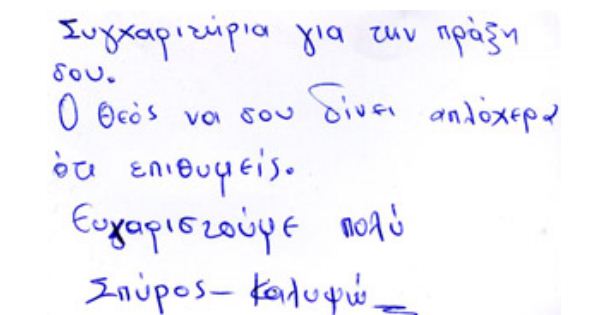 Συγχαριτήρια για την πράξη
σου.
Ο Θεός να σου δίνει απλόχερα
ότι επιθυμείς.
Ευχαριστούμε πολύ
Σπύρος - Καλυψώ